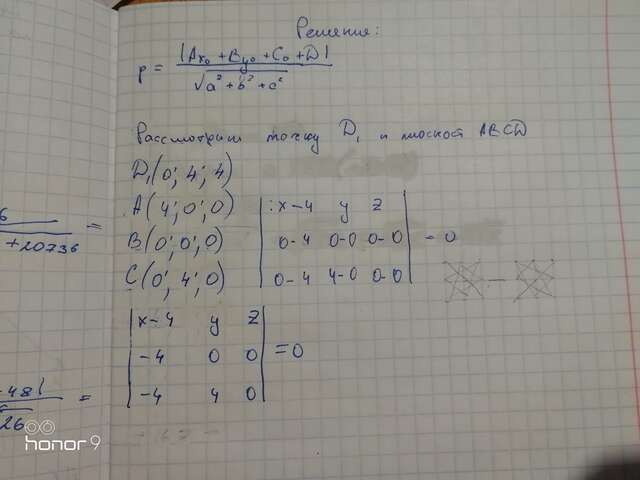 Решение:
ρ = |Ax₀ + By₀ + C₀ + D| / √a² + b² + c²
Рассмотрим точку D₁ и плоскост ABCD
D₁(0; 4; 4)
A(4; 0; 0)
B(0; 0; 0)
C(0; 4; 0)
|x-4 y z|
|0-4 0-0 0-0| = 0
|0-4 4-0 0-0|
|x-4 y z|
|-4 0 0| = 0
|-4 4 0|
6
+20736 =
-48|
26 =
honor 9